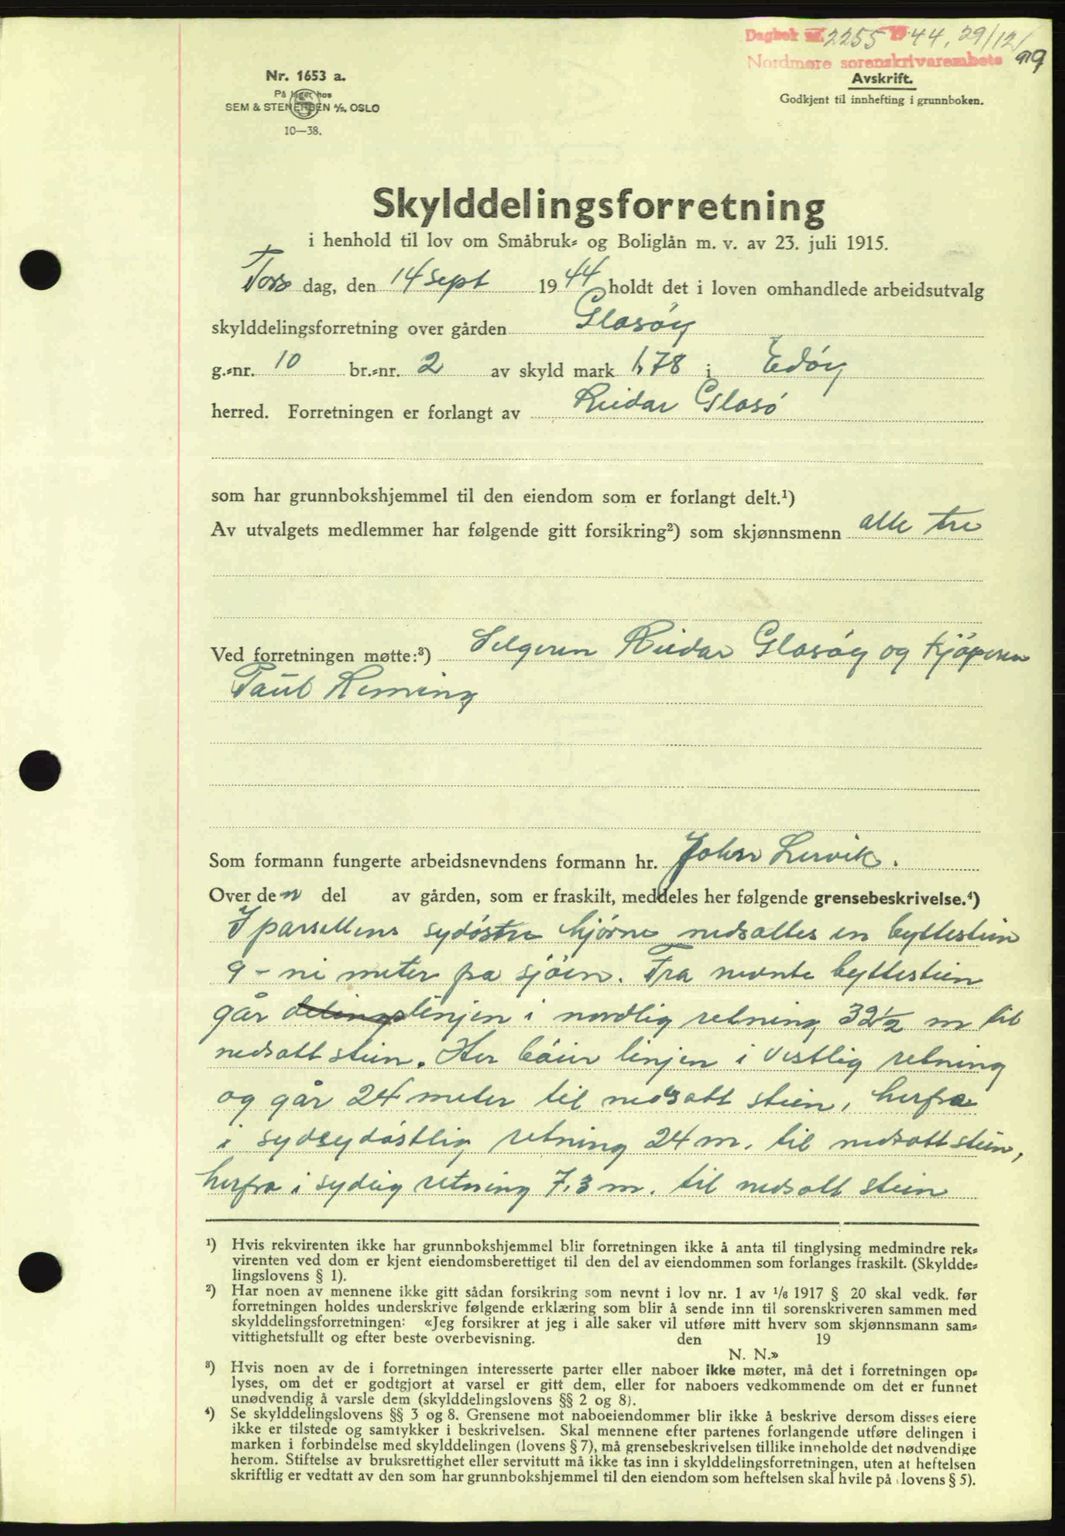 Dagbok nr. 2255 1944, 29/12
Nordmøre sorenskrivarembete 919
Nr. 1653 a.
På lager hos
SEM & STENERSEN A/S, OSLO
10—38.
Avskrift.
Godkjent til innhefting i grunnboken.
Skylddelingsforretning
i henhold til lov om Småbruk- og Boliglån m. v. av 23. juli 1915.
Tors dag, den 14 sept 1944 holdt det i loven omhandlede arbeidsutvalg
skylddelingsforretning over gården Glasøy
g.-nr. 10 br.-nr. 2 av skyld mark 1,78 i Edøy
herred. Forretningen er forlangt av Reidar Glasø
som har grunnbokshjemmel til den eiendom som er forlangt delt.¹)
Av utvalgets medlemmer har følgende gitt forsikring²) som skjønnsmenn alle tre
Ved forretningen møtte:³) Selgeren Reidar Glasøy og kjöperen
Paul Heming
Som formann fungerte arbeidsnevndens formann hr. Johan Lervik.
Over den del av gården, som er fraskilt, meddeles her følgende grensebeskrivelse.⁴)
I parsellens sydøstre hjørne nedsattes en byttestein
9 - ni meter fra sjöen. Fra nevnte byttestein
går delingslinjen i nordlig retning 32½ m til
nedsatt stein. Her bøier linjen i vestlig retning
og går 24 meter til nedsatt stein, herfra
i sydsydöstlig retning 24 m. til nedsatt stein,
herfra i sydlig retning 7,3 m. til nedsatt stein
¹) Hvis rekvirenten ikke har grunnbokshjemmel blir forretningen ikke å anta til tinglysing medmindre rek-
virenten ved dom er kjent eiendomsberettiget til den del av eiendommen som forlanges fraskilt. (Skyldde-
lingslovens § 1).
²) Har noen av mennene ikke gitt sådan forsikring som nevnt i lov nr. 1 av 1/6 1917 § 20 skal vedk. før
forretningen holdes underskrive følgende erklæring som blir å sende inn til sorenskriveren sammen med
skylddelingsforretningen: «Jeg forsikrer at jeg i alle saker vil utføre mitt hverv som skjønnsmann sam-
vittighetsfullt og efter beste overbevisning. den 19
N. N.»
³) Hvis noen av de i forretningen interesserte parter eller naboer ikke møter, må det i forretningen op-
lyses, om det er godtgjort at varsel er gitt dem, eller for naboers vedkommende om det er funnet
unødvendig å varsle dem (skylddelingslovens §§ 2 og 8).
⁴) Se skylddelingslovens §§ 3 og 8. Grensene mot naboeiendommer blir ikke å beskrive dersom disses eiere
ikke er tilstede og samtykker i beskrivelsen. Skal mennene efter partenes forlangende utføre delingen i
marken i forbindelse med skylddelingen (lovens § 7), må grensebeskrivelsen tillike inneholde det nødvendige
herom. Stiftelse av bruksrettighet eller servitutt må ikke tas inn i skylddelingsforretningen, uten at heftelsen
skriftlig er vedtatt av den som har grunnbokshjemmel til den eiendom som heftelsen skal hvile på (lovens § 5).